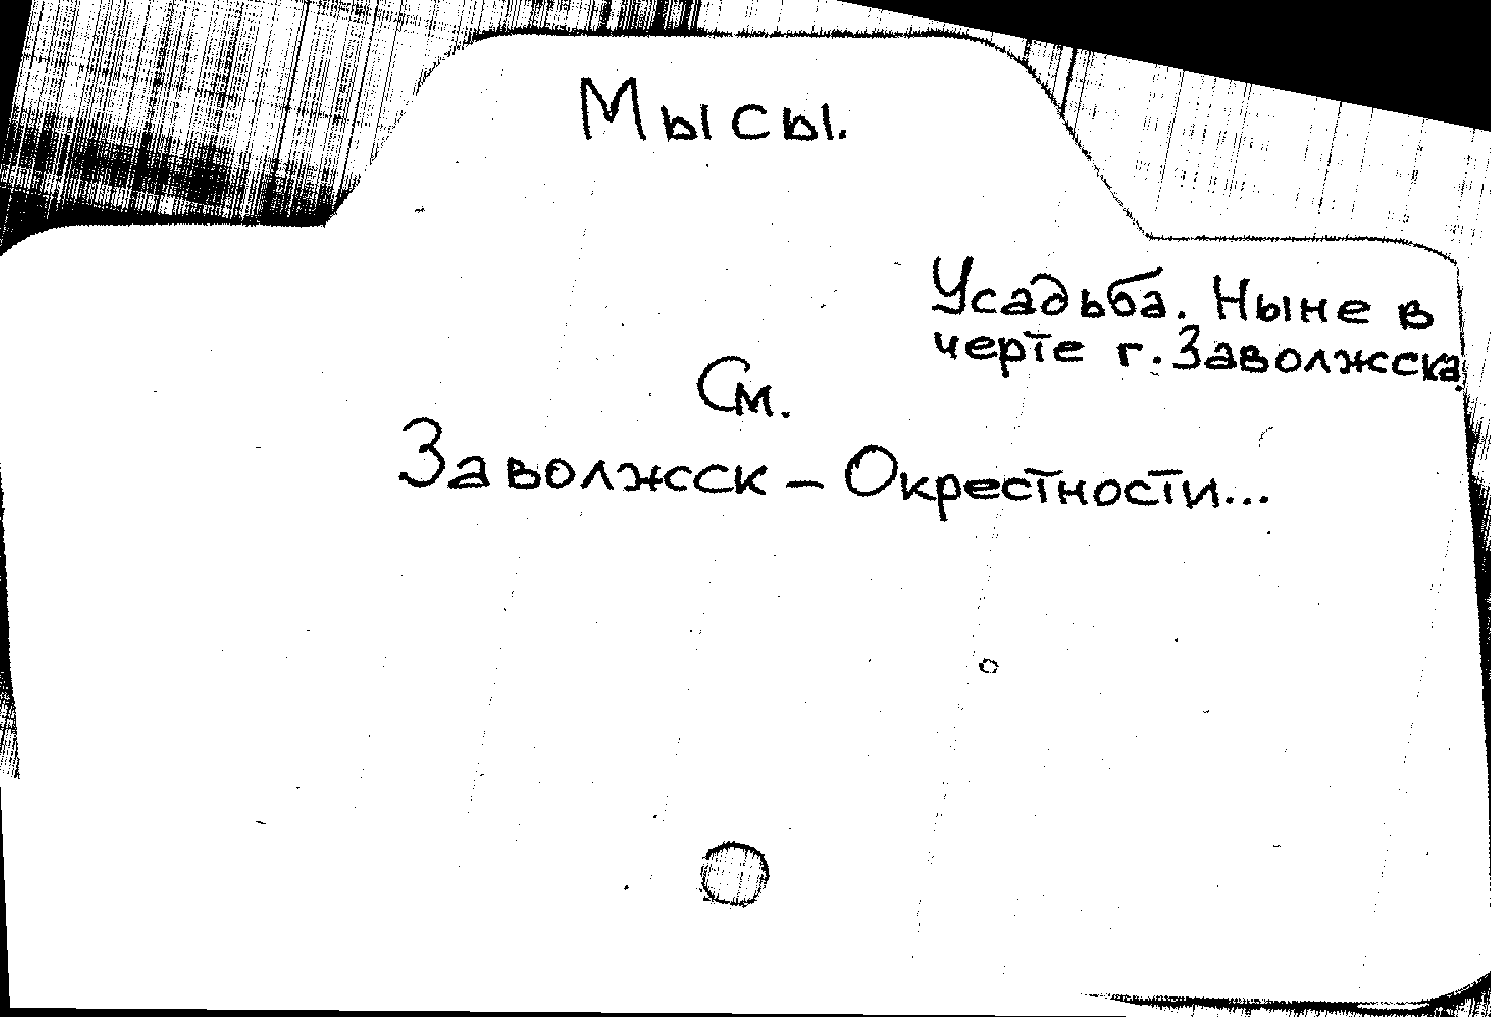 Мысы.
Усадьба. Ныне в
черте г. Заволжска.
См.
Заволжск – Окрестности...